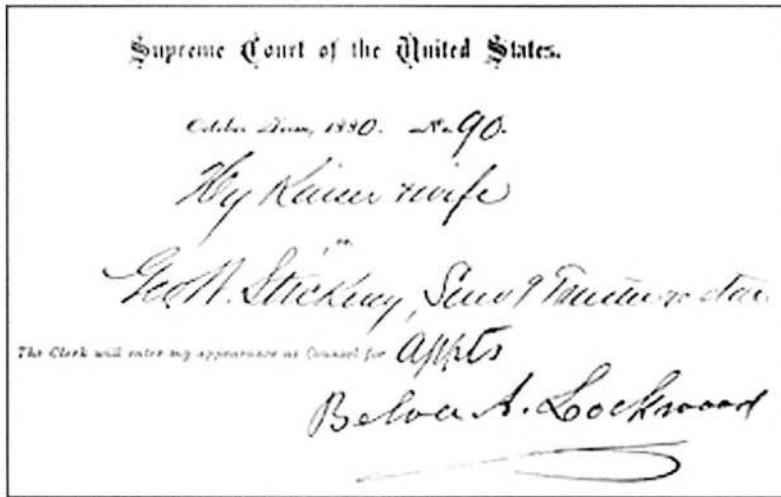 Supreme Court of the United States.
October Term, 1880. No. 90.
Hy Kaiser & wife
vs
Geo N. Stickney,
The Clerk will enter my appearance as Counsel for Appts
Belva A. Lockwood